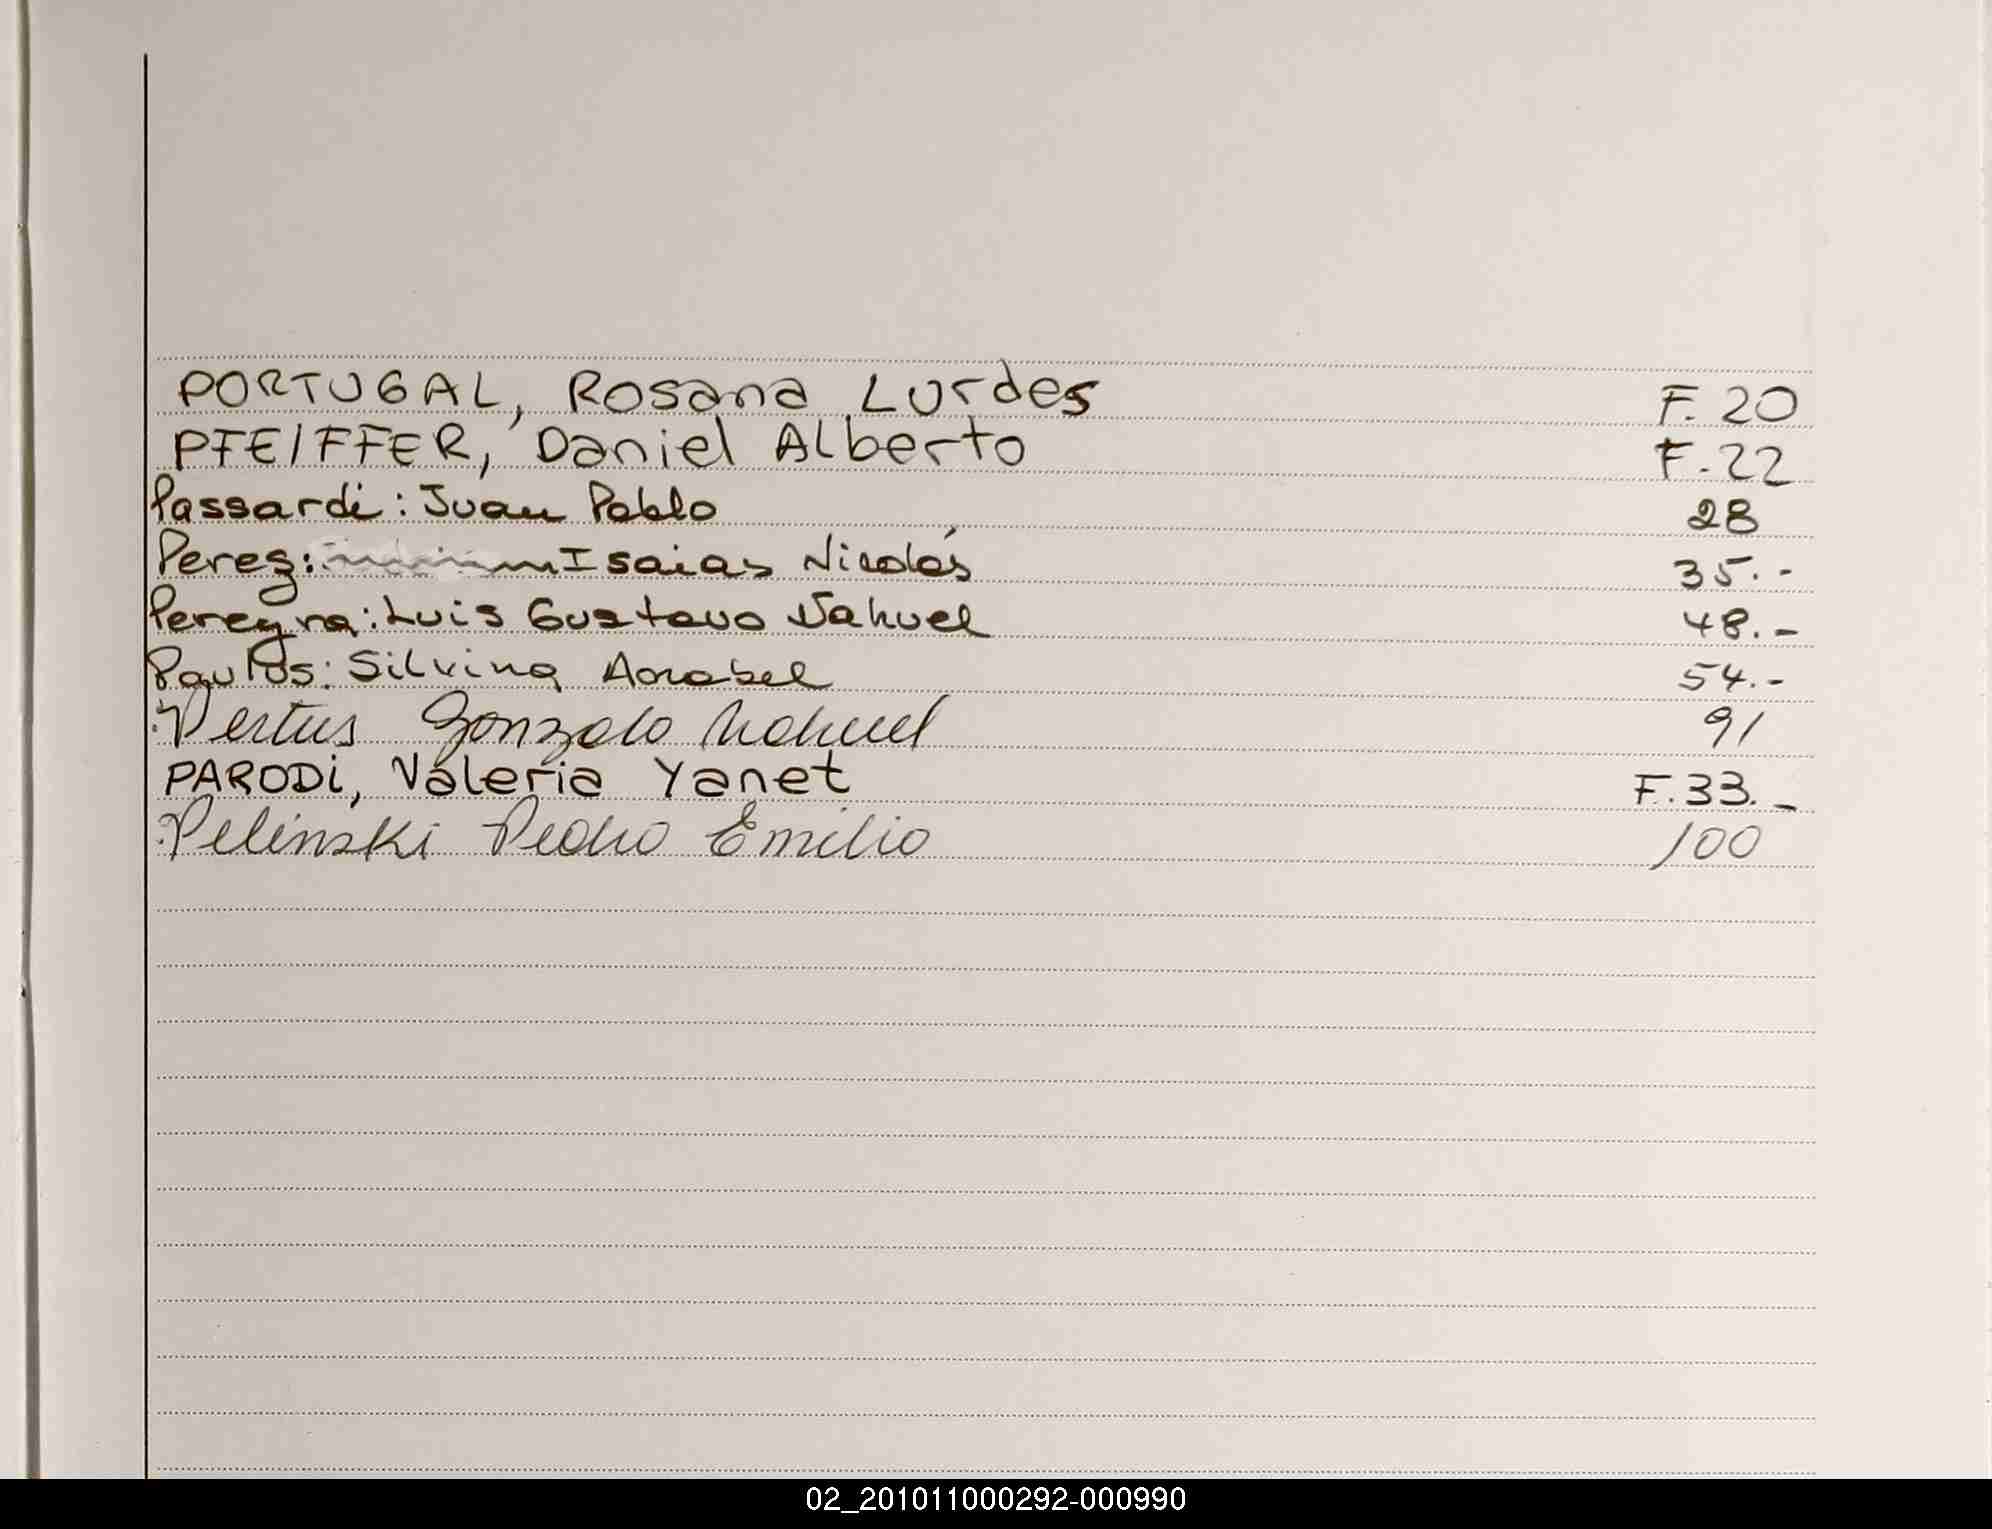 PORTUGAL, Rosana Lurdes F. 20
PFEIFFER, Daniel Alberto F. 22
Passardi: Juan Pablo 28
Perez: Isaias Nicolás 35.-
Pereyra: Luis Gustavo Nahuel 48.-
Paulus: Silvina Anabel 54.-
Pertus Gonzalo Nahuel 91
PARODi, Valeria Yanet F. 33.-
Pelinski Pedro Emilio 100
02_201011000292-000990